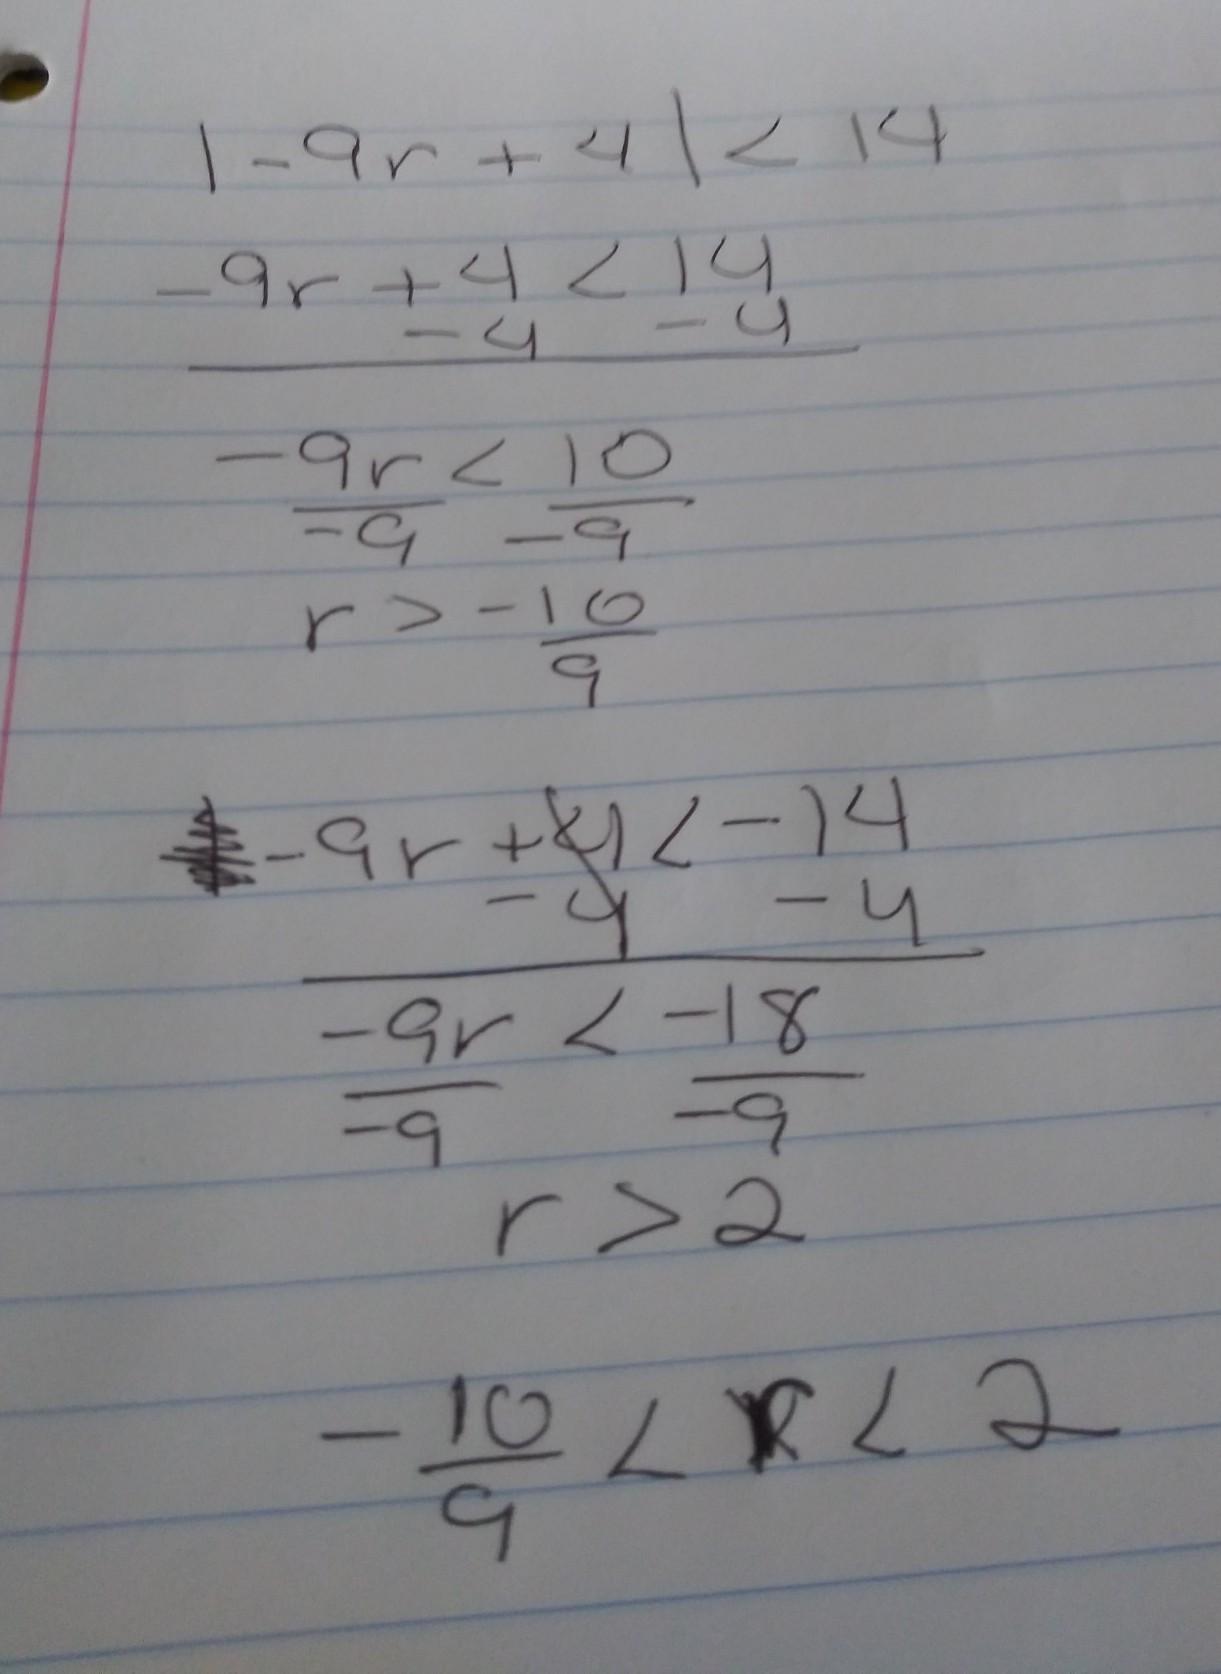 |-9r + 4| < 14
-9r + 4 < 14
-4 -4
-9r < 10
-9 -9
r > -10
9
-9r + 4 < -14
-4 -4
-9r < -18
-9 -9
r > 2
-10/9 < r < 2